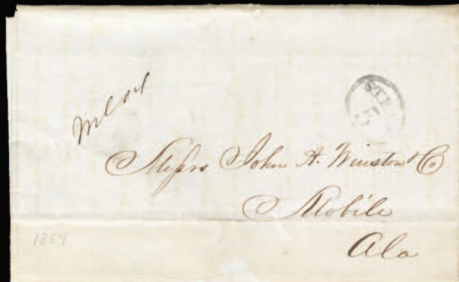 STE
5
Messrs John A. Winston & Co
Mobile
Ala
1854